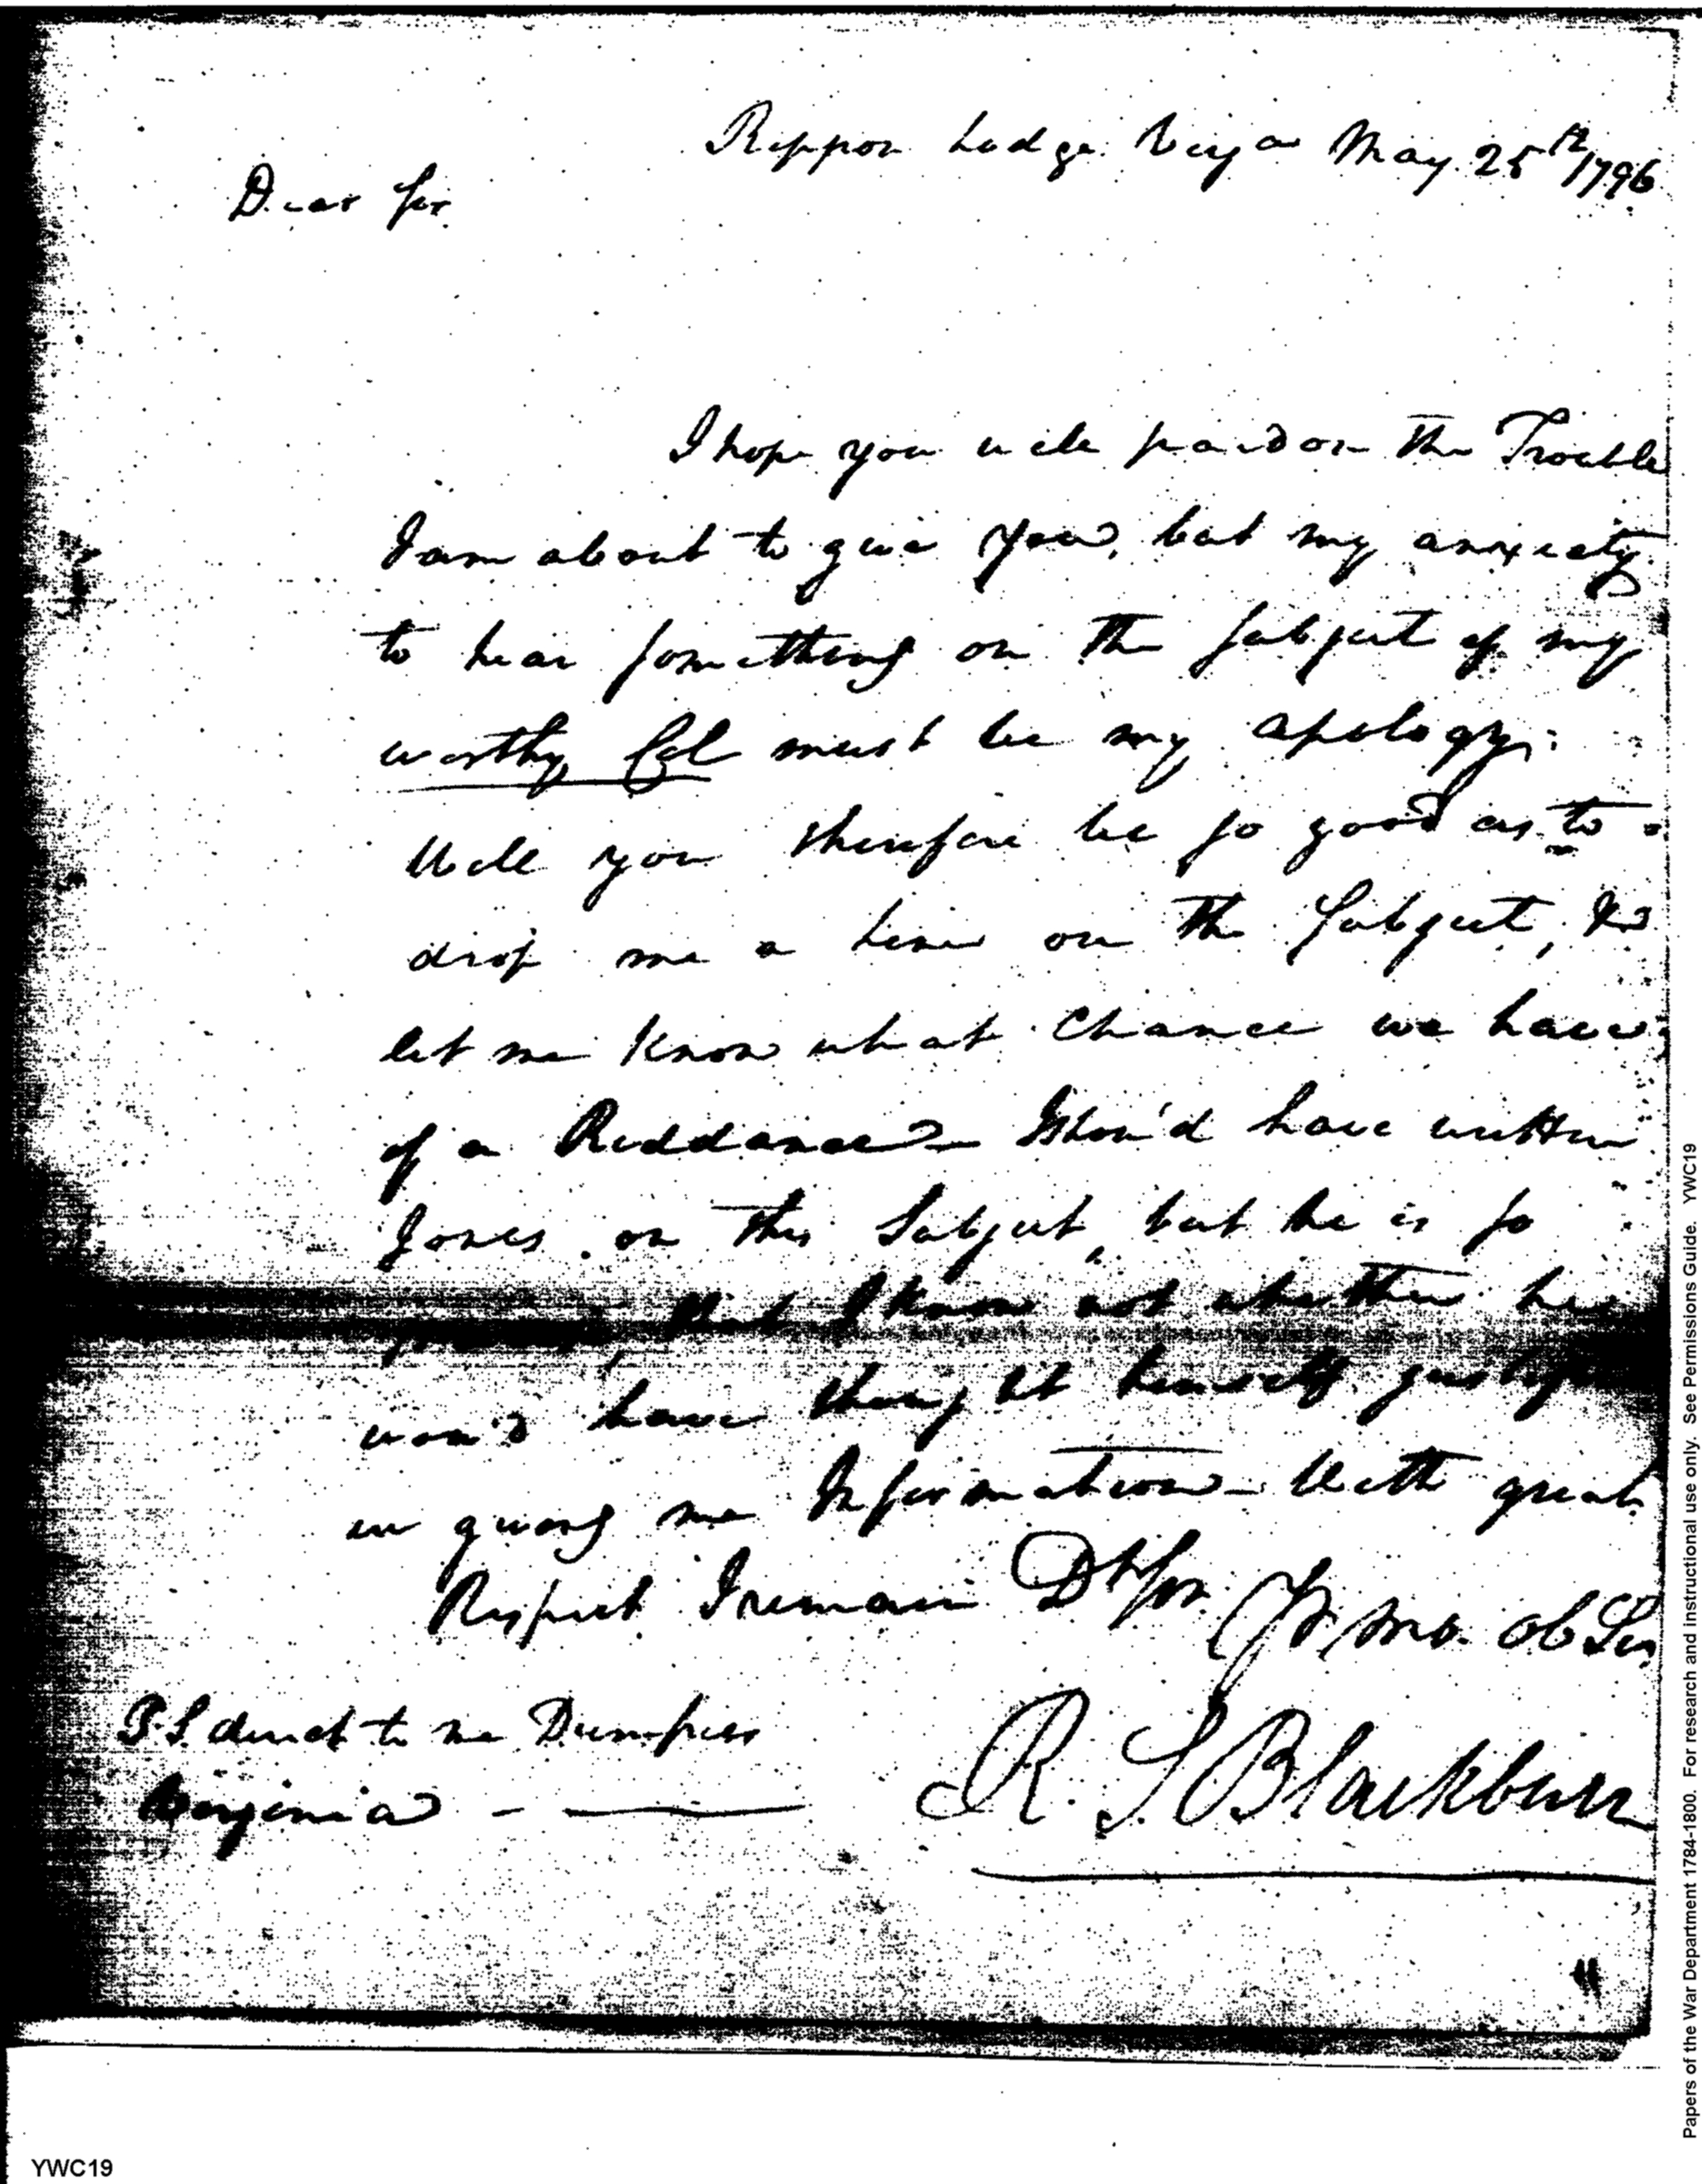 Rippon Lodge Virga May 25th 1796
Dear Sir
I hope you will pardon the Trouble
I am about to give you, but my anxiety
to hear something on the subject of my
worthy Col must be my apology.
Will you therefore be so good as to
drop me a line on the Subject, &
let me know what Chance we have
of a Riddance - I shou'd have written
Jones on this Subject, but he is so
that I know not whether he
wou'd have thought himself
in giving me Information - With great
Respect I remain Dr Sir Yr mo. ob Ser
P.S. direct to me Dumfries
Virginia
R. S. Blackburn
Papers of the War Department 1784-1800. For research and instructional use only. See Permissions Guide. YWC19
YWC19